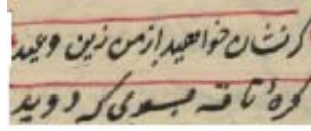 گر نشان خواهید از من زین وعید
کرهٔ ناقه بسوی که دوید